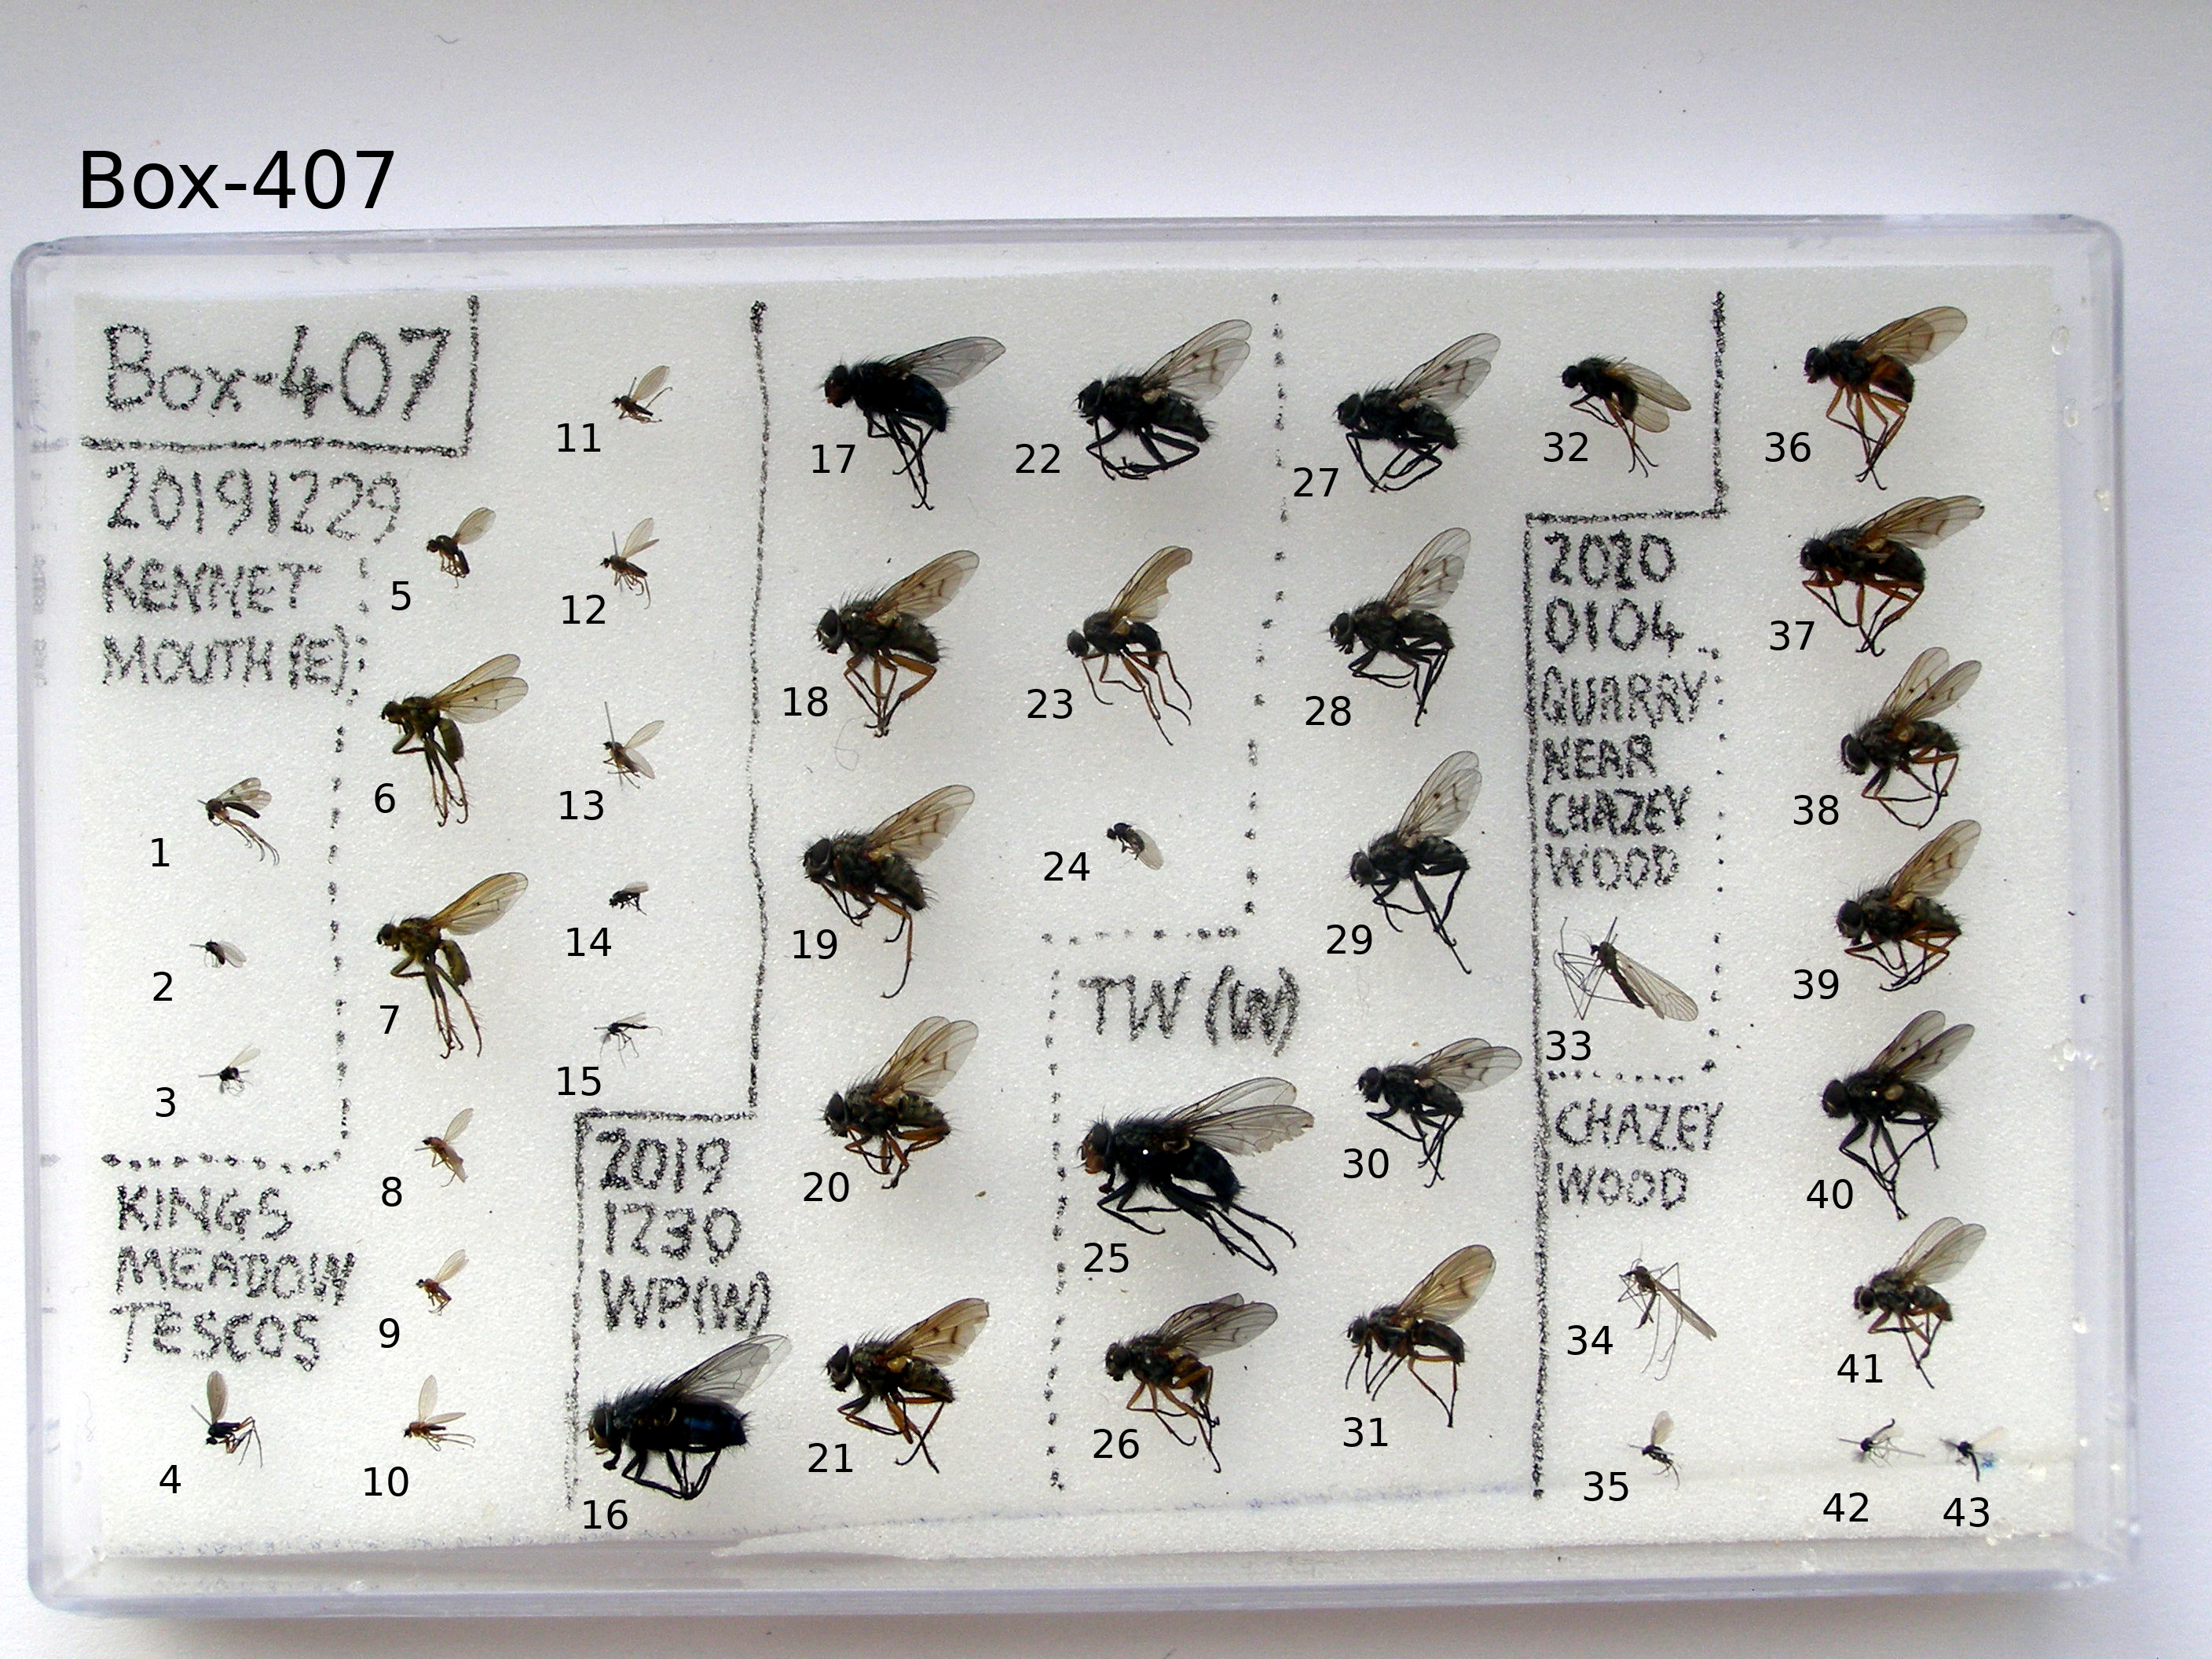 Box-407
Box-407
20191229
KENNET
MOUTH (E)
1
2
3
KINGS
MEADOW
TESCOS
4
5
6
7
8
9
10
11
12
13
14
15
2019
1230
WP(W)
16
17
18
19
20
21
22
23
24
TW (W)
25
26
27
28
29
30
31
32
2020
0104
QUARRY
NEAR
CHAZEY
WOOD
33
CHAZEY
WOOD
34
35
36
37
38
39
40
41
42
43